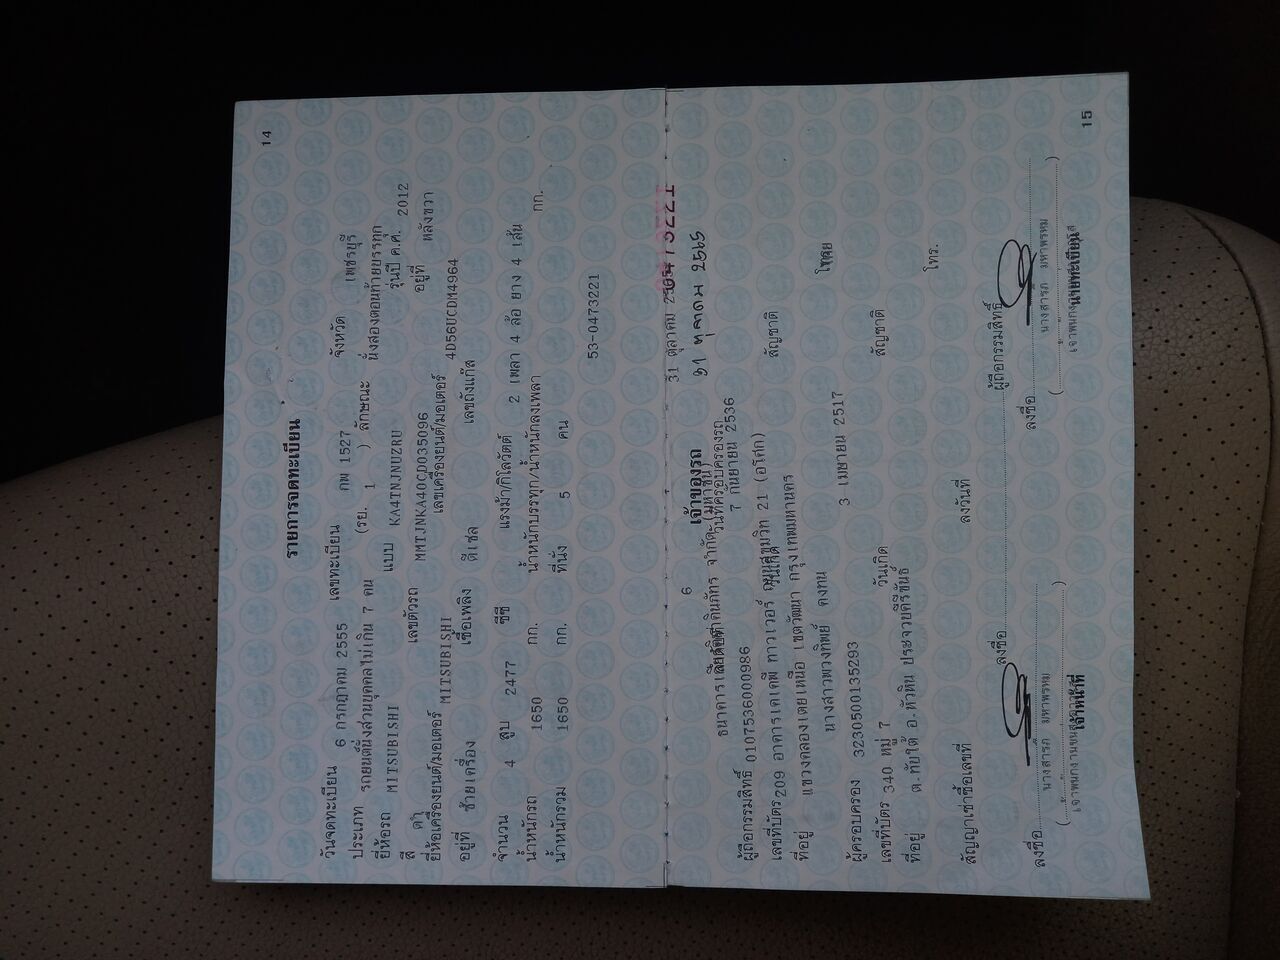 14
รายการจดทะเบียน
วันจดทะเบียน 6 กรกฎาคม 2555 เลขทะเบียน กพ 1527 จังหวัด เพชรบุรี
ประเภท รถยนต์นั่งส่วนบุคคลไม่เกิน 7 คน (รย. 1 ) ลักษณะ นั่งสองตอนท้ายบรรทุก
ยี่ห้อรถ MITSUBISHI แบบ KA4TNJNUZRU รุ่นปี ค.ศ. 2012
สี ดำ เลขตัวรถ MMTJNKA40CD035096 อยู่ที่ หลังขวา
ยี่ห้อเครื่องยนต์/มอเตอร์ MITSUBISHI เลขเครื่องยนต์/มอเตอร์ 4D56UCDM4964
อยู่ที่ ซ้ายเครื่อง เชื้อเพลิง ดีเซล เลขถังแก๊ส
จำนวน 4 สูบ 2477 ซีซี แรงม้า/กิโลวัตต์ 2 เพลา 4 ล้อ ยาง 4 เส้น
น้ำหนักรถ 1650 กก. น้ำหนักบรรทุก/น้ำหนักลงเพลา กก.
น้ำหนักรวม 1650 กก. ที่นั่ง 5 คน
53-0473221
เจ้าของรถ
6 วันที่ครอบครองรถ 31 ตุลาคม
31 ตุลาคม 2565
ผู้ถือกรรมสิทธิ์ 0107536000986 (มหาชน) 7 กันยายน 2536 สัญชาติ ไทย
เลขที่บัตร 209 อาคารเคเคพี ทาวเวอร์ 21 (อโศก)
ที่อยู่ แขวงคลองเตยเหนือ เขตวัฒนา กรุงเทพมหานคร
นางสาวพวงทิพย์ คงทน
ผู้ครอบครอง 3230500135293 3 เมษายน 2517
เลขที่บัตร 340 หมู่ 7 วันเกิด สัญชาติ
ที่อยู่ ต.ทับใต้ อ.หัวหิน ประจวบคีรีขันธ์ โทร.
สัญญาเช่าซื้อเลขที่ ลงวันที่
ลงชื่อ ผู้ถือกรรมสิทธิ์
ลงชื่อ ลงชื่อ
นางสาริภ์ มหาพรหม นางสาริภ์ มหาพรหม
เจ้าหน้าที่ นายทะเบียน
15